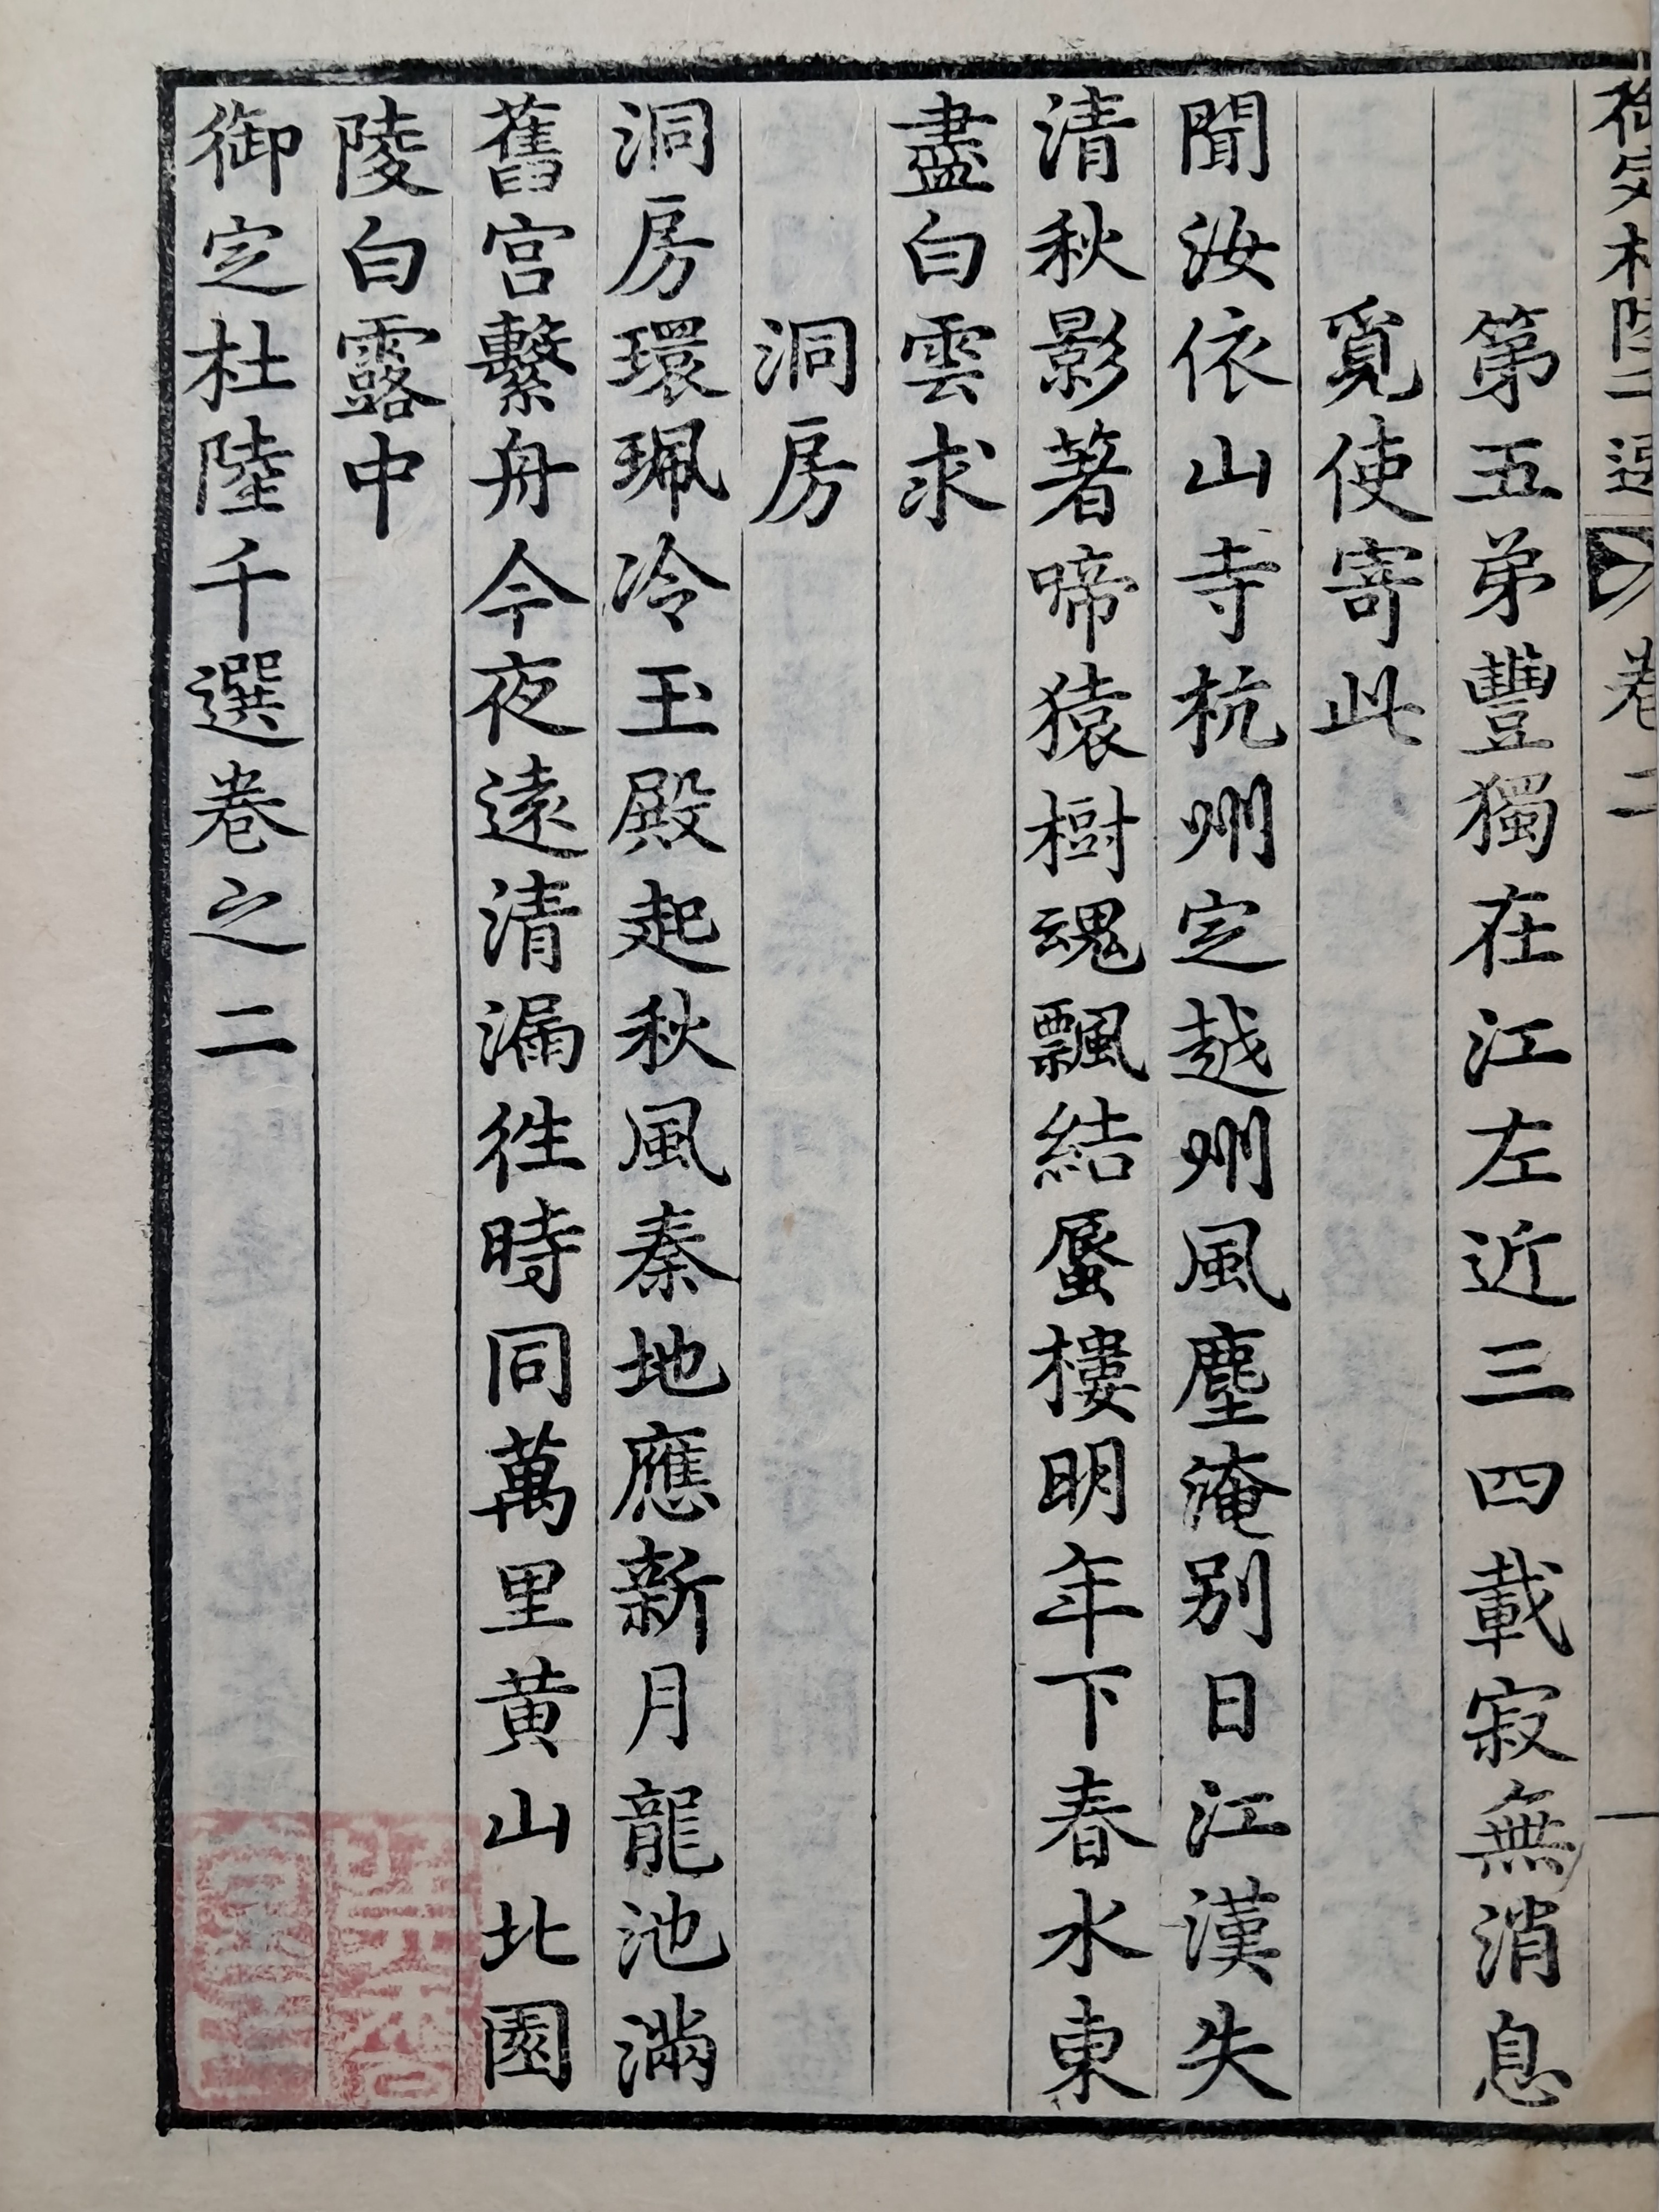 卷二
第五弟豐獨在江左近三四載寂無消息
覓使寄此
聞汝依山寺杭州定越州風塵淹別日江漢失
清秋影著啼猿樹魂飄結蜃樓明年下春水東
盡白雲求
洞房
洞房環珮冷玉殿起秋風秦地應新月龍池滿
舊宮繫舟今夜遠清漏徃時同萬里黃山北園
陵白露中
御定杜陸千選卷之二